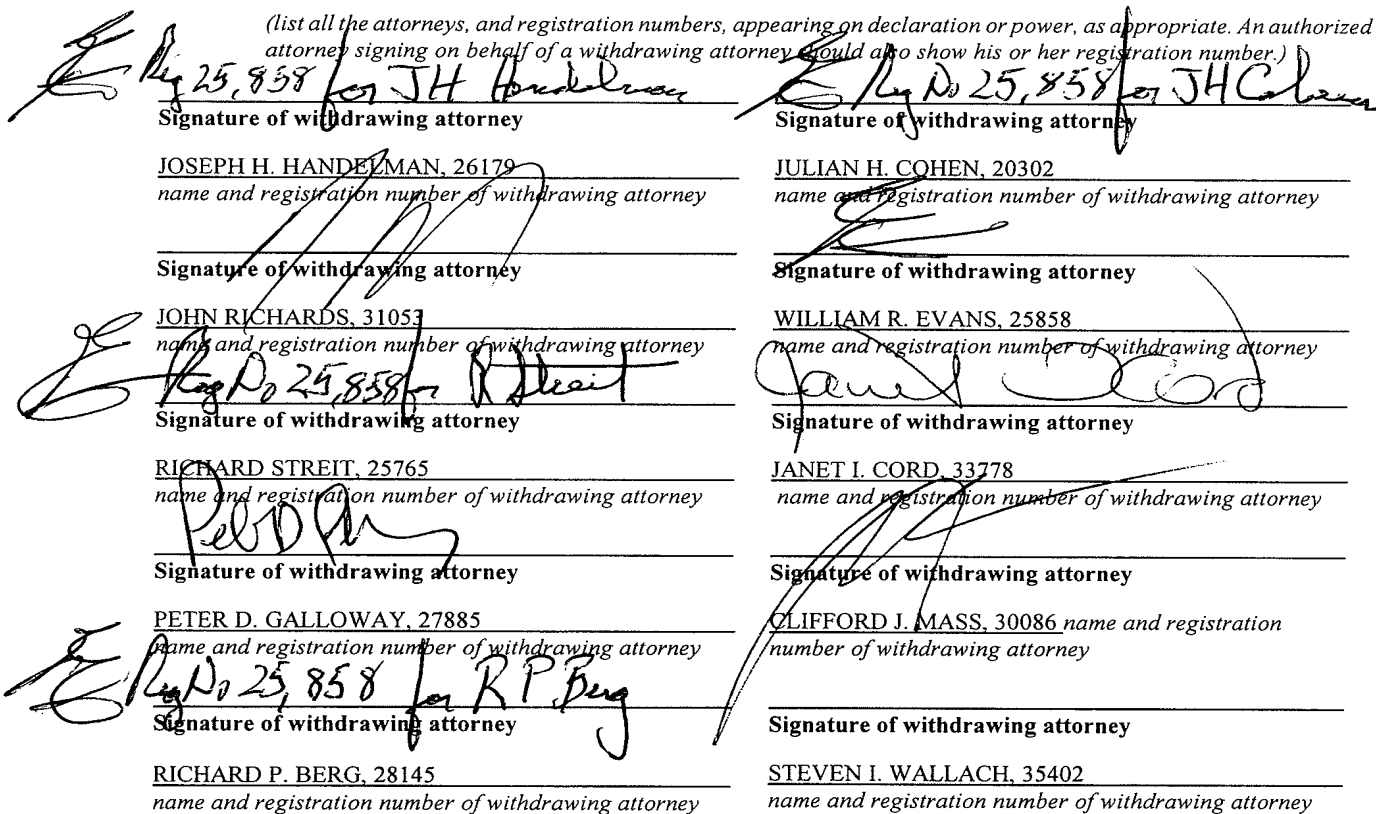 (list all the attorneys, and registration numbers, appearing on declaration or power, as appropriate. An authorized
attorney signing on behalf of a withdrawing attorney should also show his or her registration number.)
Reg 25,858 for JH Handelman
Signature of withdrawing attorney
JOSEPH H. HANDELMAN, 26179
name and registration number of withdrawing attorney
Reg No 25,858 for JH Cohen
Signature of withdrawing attorney
JULIAN H. COHEN, 20302
name and registration number of withdrawing attorney
Signature of withdrawing attorney
JOHN RICHARDS, 31053
name and registration number of withdrawing attorney
Signature of withdrawing attorney
WILLIAM R. EVANS, 25858
name and registration number of withdrawing attorney
Reg No 25,858 for R Streit
Signature of withdrawing attorney
RICHARD STREIT, 25765
name and registration number of withdrawing attorney
Janet I Cord
Signature of withdrawing attorney
JANET I. CORD, 33778
name and registration number of withdrawing attorney
Signature of withdrawing attorney
PETER D. GALLOWAY, 27885
name and registration number of withdrawing attorney
Signature of withdrawing attorney
CLIFFORD J. MASS, 30086 name and registration
number of withdrawing attorney
Reg No 25,858 for R P Berg
Signature of withdrawing attorney
RICHARD P. BERG, 28145
name and registration number of withdrawing attorney
Signature of withdrawing attorney
STEVEN I. WALLACH, 35402
name and registration number of withdrawing attorney